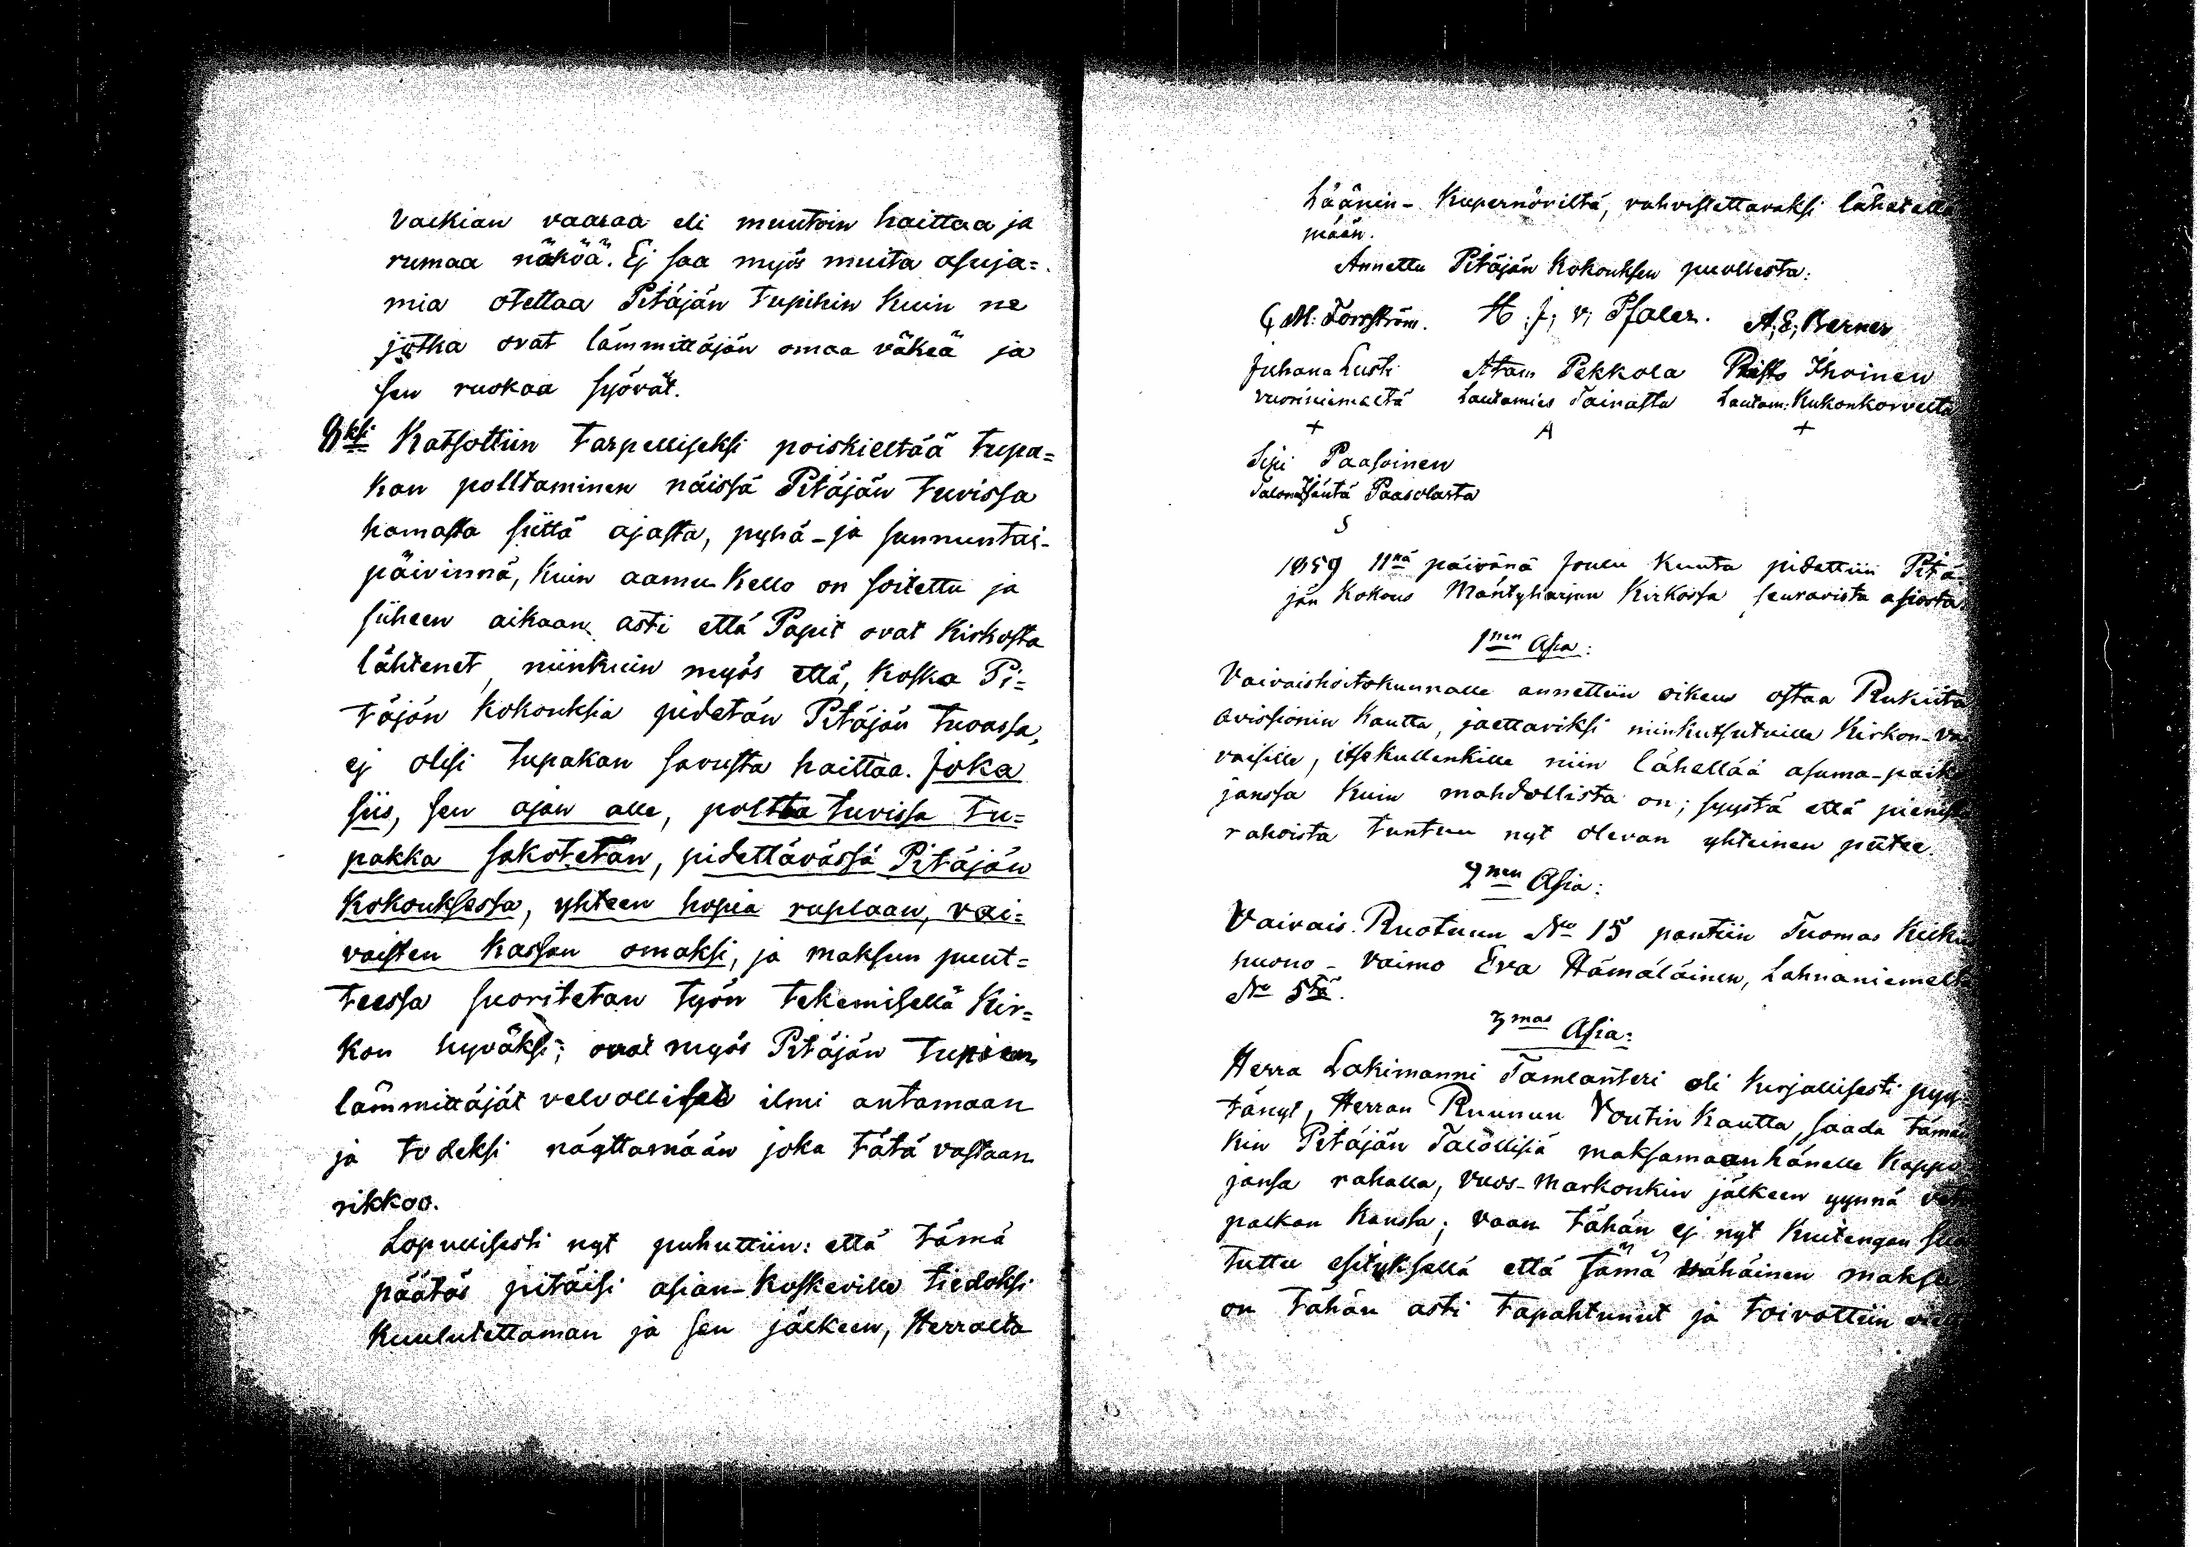 Valkian vaaraa eli muutoin haittaa ja
rumaa näköä. Ej saa myös muita asuja=
mia otettaa Pitäjän tupihin kuin ne
jotka ovat lämmittäjän omaa väkeä ja
sen ruokaa syövät.
8ksi Katsottiin tarpelliseksi poiskieltää tupa=
kan polttaminen näissä Pitäjän tuvissa
hamasta siittä ajasta, pyhä- ja sunnuntai-
päivinnä, kuin aamu kello on soitettu ja
siiheen aikaan asti että Papit ovat Kirkosta
lähtenet, niinkuin myös että, koska Pi=
täjän kokouksia pidetän Pitäjän tuvassa,
ej olisi tupakan savusta haittaa. Joka
siis, sen ajan alle, polttaa tuvissa tu=
pakka sakotetan, pidettävässä Pitäjän
kokouksessa, yhteen hopia ruplaan, vai=
vaisten kassan omaksi, ja maksun puut=
teessa suoritetan työn tekemisellä Kir=
kon hyväksi; ovat myös Pitäjän tupien
lämmittäjät velvolliset ilmi antamaan
ja todeksi näyttämään joka tätä vastaan
rikkoo.
Lopullisesti nyt puhuttiin: että tämä
päätös pitäisi asian-koskeville tiedoksi
kuulutettaman ja sen jälkeen, Herralta
Läänin- Kupernöriltä, vahvistettavaksi lähätettä
mään.
Annettu Pitäjän kokouksen puollesta:
G. M. Forsström. H. J. v. Pfaler. A. E. Berner
Juhana Lusti Atam Pekkola Risto Ihoinen
Vuoriniemeltä Lautamies Toirasta Lautam: Kukonkorvelta
+ A +
Sipi Paasoinen
Talon Isäntä Paasolasta
S
1859 11nä päivänä Joulu kuuta pidettiin Pitä-
jän kokous Mäntyharjun Kirkossa seuravista asioista
1nen Asia:
Vaivaishoitokunnalle annettiin oikeus ostaa Rukiita
avissionin kautta, jaettaviksi niinkutsutuille Kirkon-vai
vaisille, itsekullenkille niin lähellää asuma-paik
jänssä kuin mahdollista on; syystä että pienistä
rahoista tuntuu nyt olevan yhteinen puute.
2nen Asia:
Vaivais Ruotuun No 15 pantiin Tuomas Kiik
huono- vaimo Eva Hämäläinen, Lahnaniemeltä
No 5tä.
3mas Asia:
Herra Lakimanni Tamlanteri oli kirjallisesti pyy-
tänyt, Herran Ruunun Voutin kautta, saada tämän
kin Pitäjän Talollisiä maksamaan hänelle Kappo
jansa rahalla, vuos-Markonkin jälkeen yynnä
palkan kanssa; vaan tähän ej nyt kuitengan suo
tuttu esityksellä että sämä vähäinen maksu
on tähän asti tapahtunut ja toivottiin